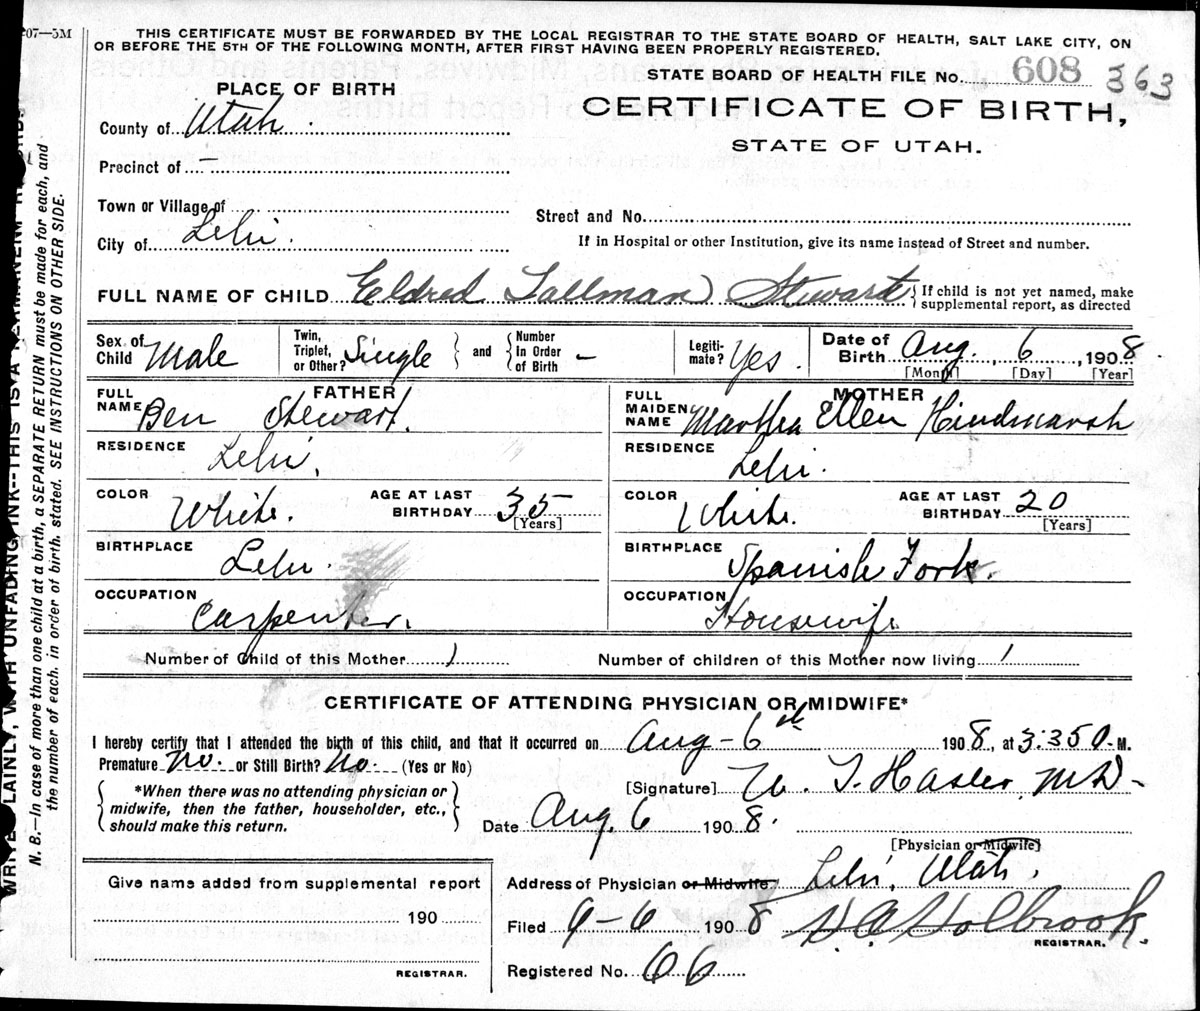 07—5M
THIS CERTIFICATE MUST BE FORWARDED BY THE LOCAL REGISTRAR TO THE STATE BOARD OF HEALTH, SALT LAKE CITY, ON
OR BEFORE THE 5TH OF THE FOLLOWING MONTH, AFTER FIRST HAVING BEEN PROPERLY REGISTERED.
STATE BOARD OF HEALTH FILE No. 608 363
PLACE OF BIRTH
CERTIFICATE OF BIRTH,
STATE OF UTAH.
County of Utah.
Precinct of
Town or Village of
City of Lehi.
Street and No.
If in Hospital or other Institution, give its name instead of Street and number.
FULL NAME OF CHILD Eldred Tallman Stewart { If child is not yet named, make
supplemental report, as directed
Sex of Child Male
Twin, Triplet, or Other? Single } and { Number In Order of Birth —
Legiti-mate? Yes.
Date of Birth Aug. 6, 1908.
[Month] [Day] [Year]
FATHER
FULL NAME Ben Stewart.
RESIDENCE Lehi.
COLOR White. AGE AT LAST BIRTHDAY 35 [Years]
BIRTHPLACE Lehi.
OCCUPATION Carpenter.
MOTHER
FULL MAIDEN NAME Martha Ellen Hindmarsh
RESIDENCE Lehi.
COLOR White. AGE AT LAST BIRTHDAY 20 [Years]
BIRTHPLACE Spanish Fork.
OCCUPATION Housewife
Number of Child of this Mother 1 Number of children of this Mother now living 1
CERTIFICATE OF ATTENDING PHYSICIAN OR MIDWIFE*
I hereby certify that I attended the birth of this child, and that it occurred on Aug-6th 1908, at 3:350 M.
Premature No. or Still Birth? No. (Yes or No)
*When there was no attending physician or
midwife, then the father, householder, etc.,
should make this return.
[Signature] T. Hasler, MD-
Date Aug. 6 1908.
[Physician or Midwife]
Address of Physician or Midwife Lehi, Utah.
Filed 6-6 1908 H A Holbrook.
REGISTRAR.
Registered No. 66
Give name added from supplemental report
190
REGISTRAR.
N. B.—In case of more than one child at a birth, a SEPARATE RETURN must be made for each, and
the number of each, in order of birth, stated. SEE INSTRUCTIONS ON OTHER SIDE.
WRITE PLAINLY, WITH UNFADING INK--THIS IS A PERMANENT RECORD.